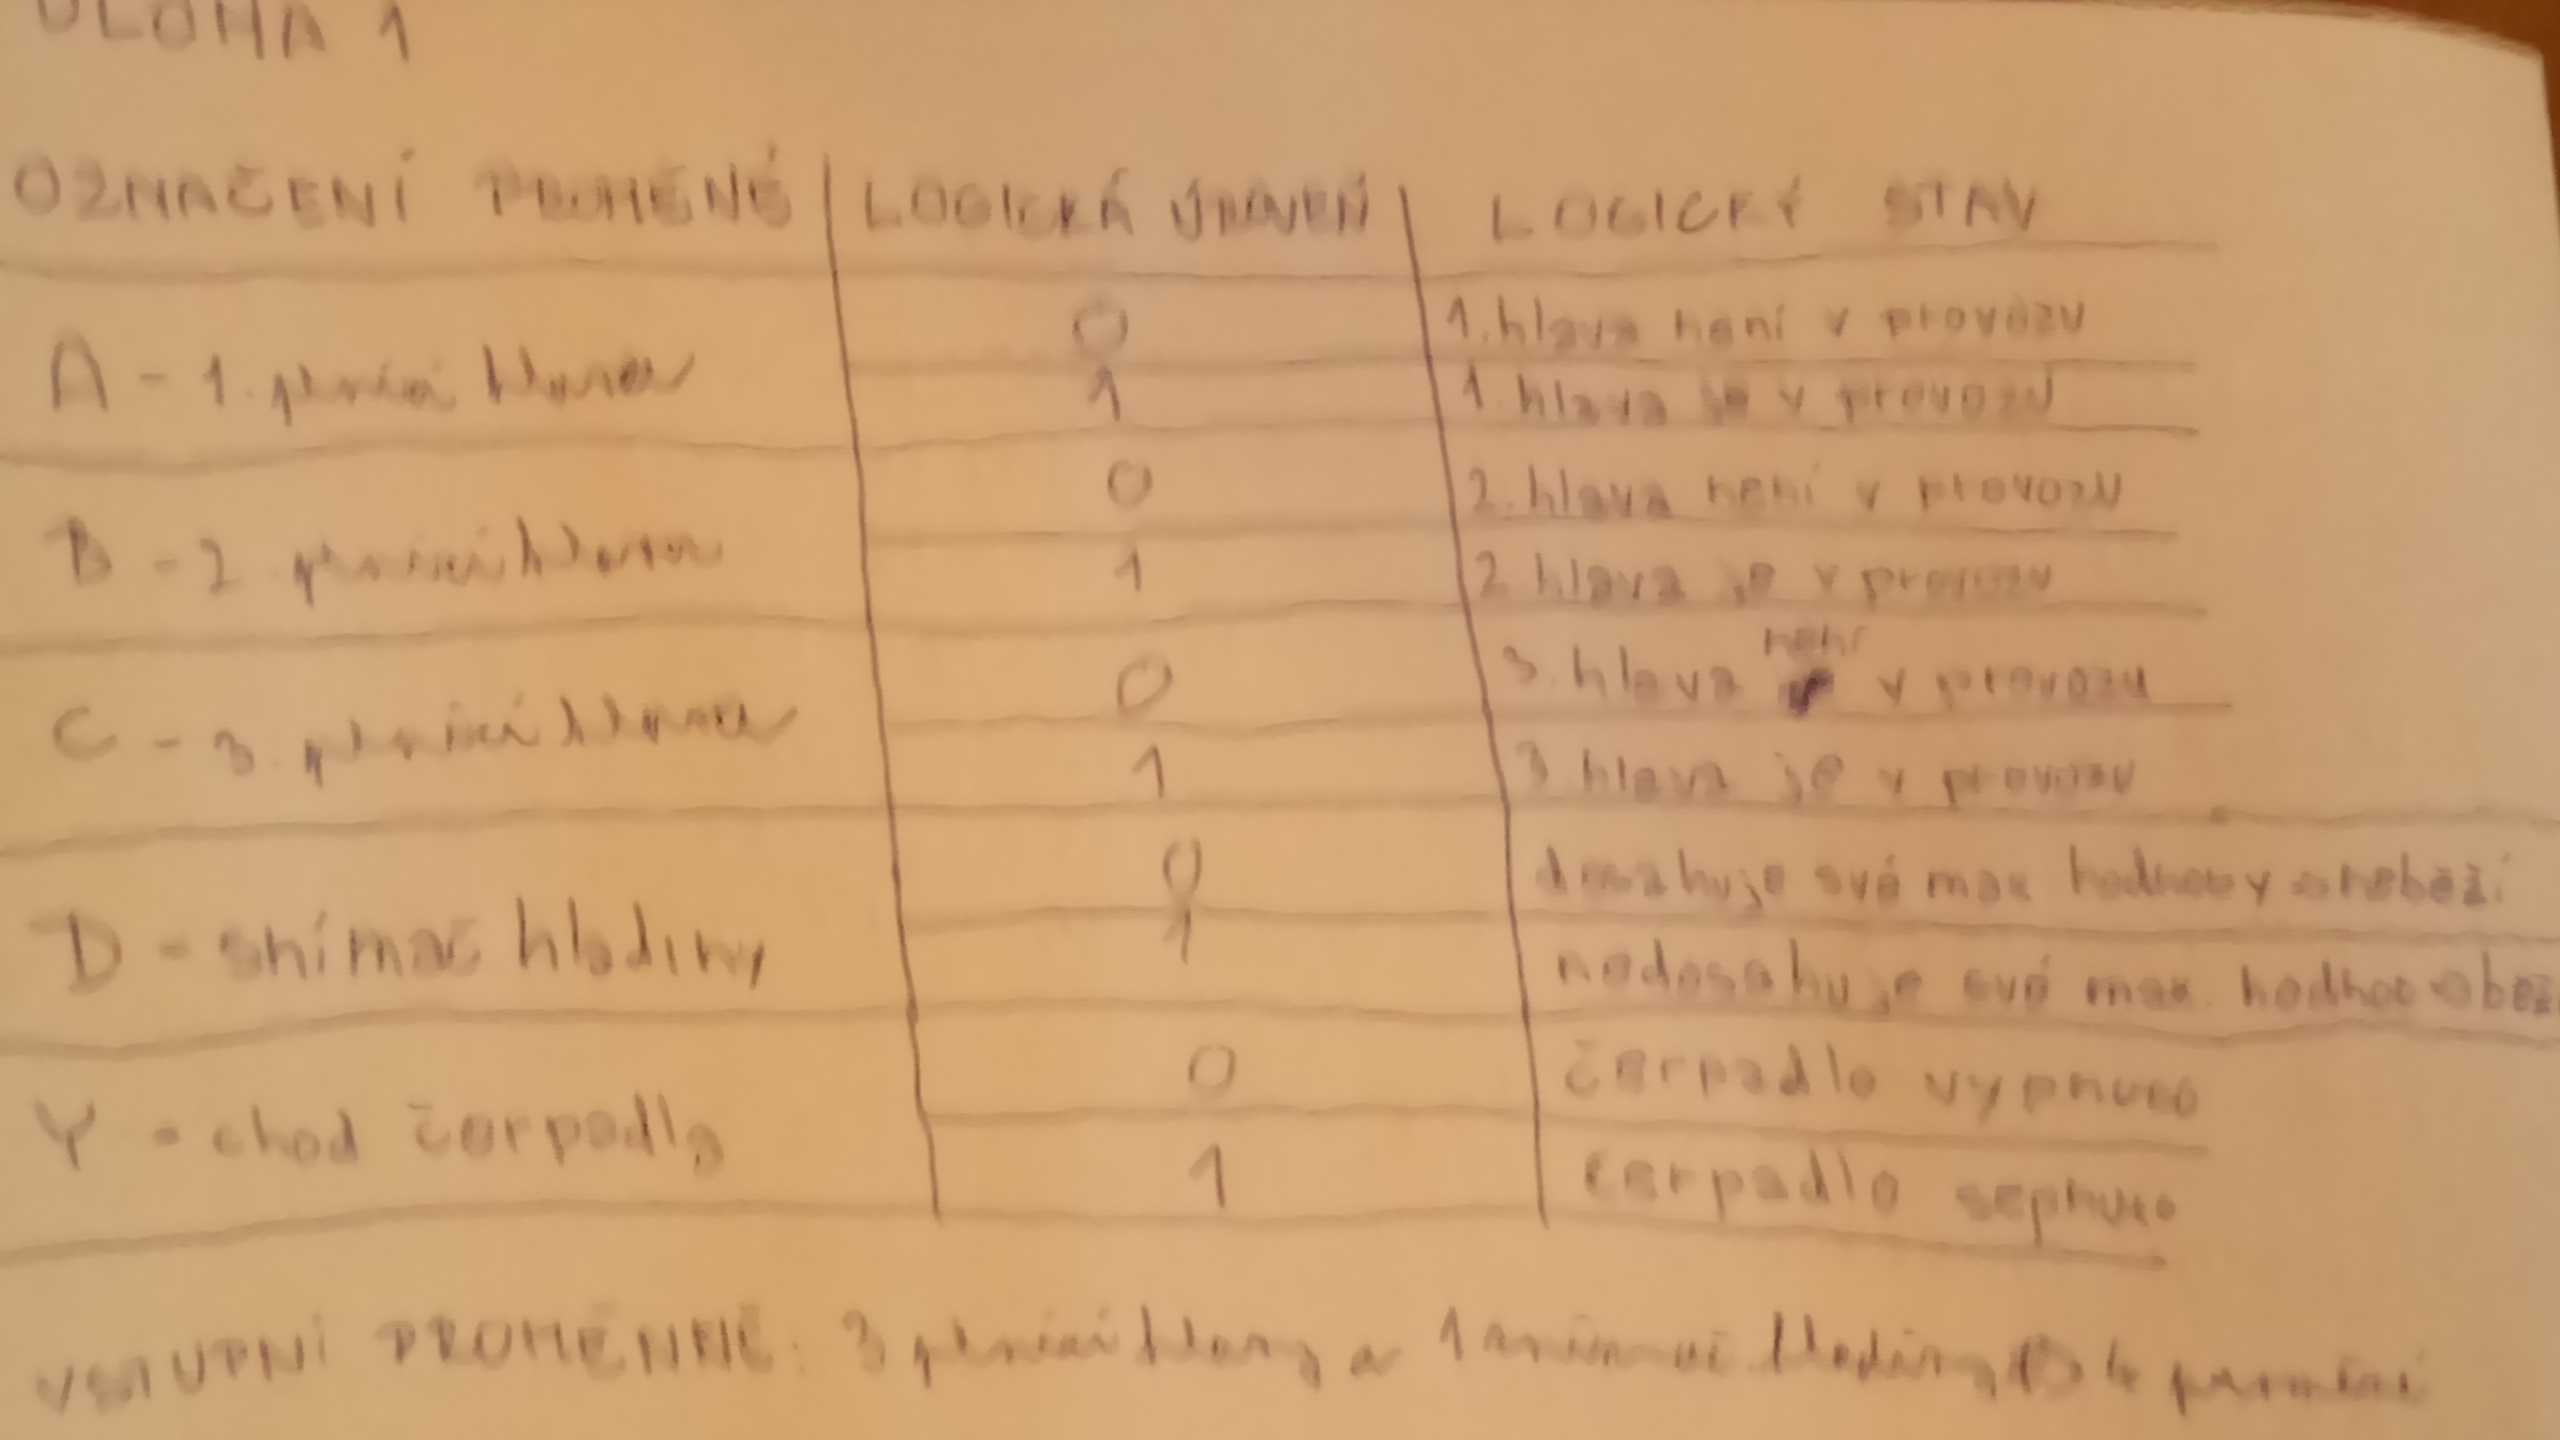 ÚLOHA 1
OZNAČENÍ PROMĚNÉ LOGICKÁ ÚROVEŇ LOGICKÝ STAV
0 1. hlava není v provozu
A - 1. plnicí hlava
1 1. hlava je v provozu
0 2. hlava není v provozu
B - 2. plnicí hlava
1 2. hlava je v provozu
není
0 3. hlava v provozu
C - 3. plnicí hlava
1 3. hlava je v provozu
0 dosahuje své max hodnoty neběží
D - snímač hladiny
1 nedosahuje své max. hodnot
0 čerpadlo vypnuto
Y - chod čerpadla
1 čerpadlo sepnuto
VSTUPNÍ PROMĚNNÉ: 3 plnicí hlavy a 1 snímač hladiny 4